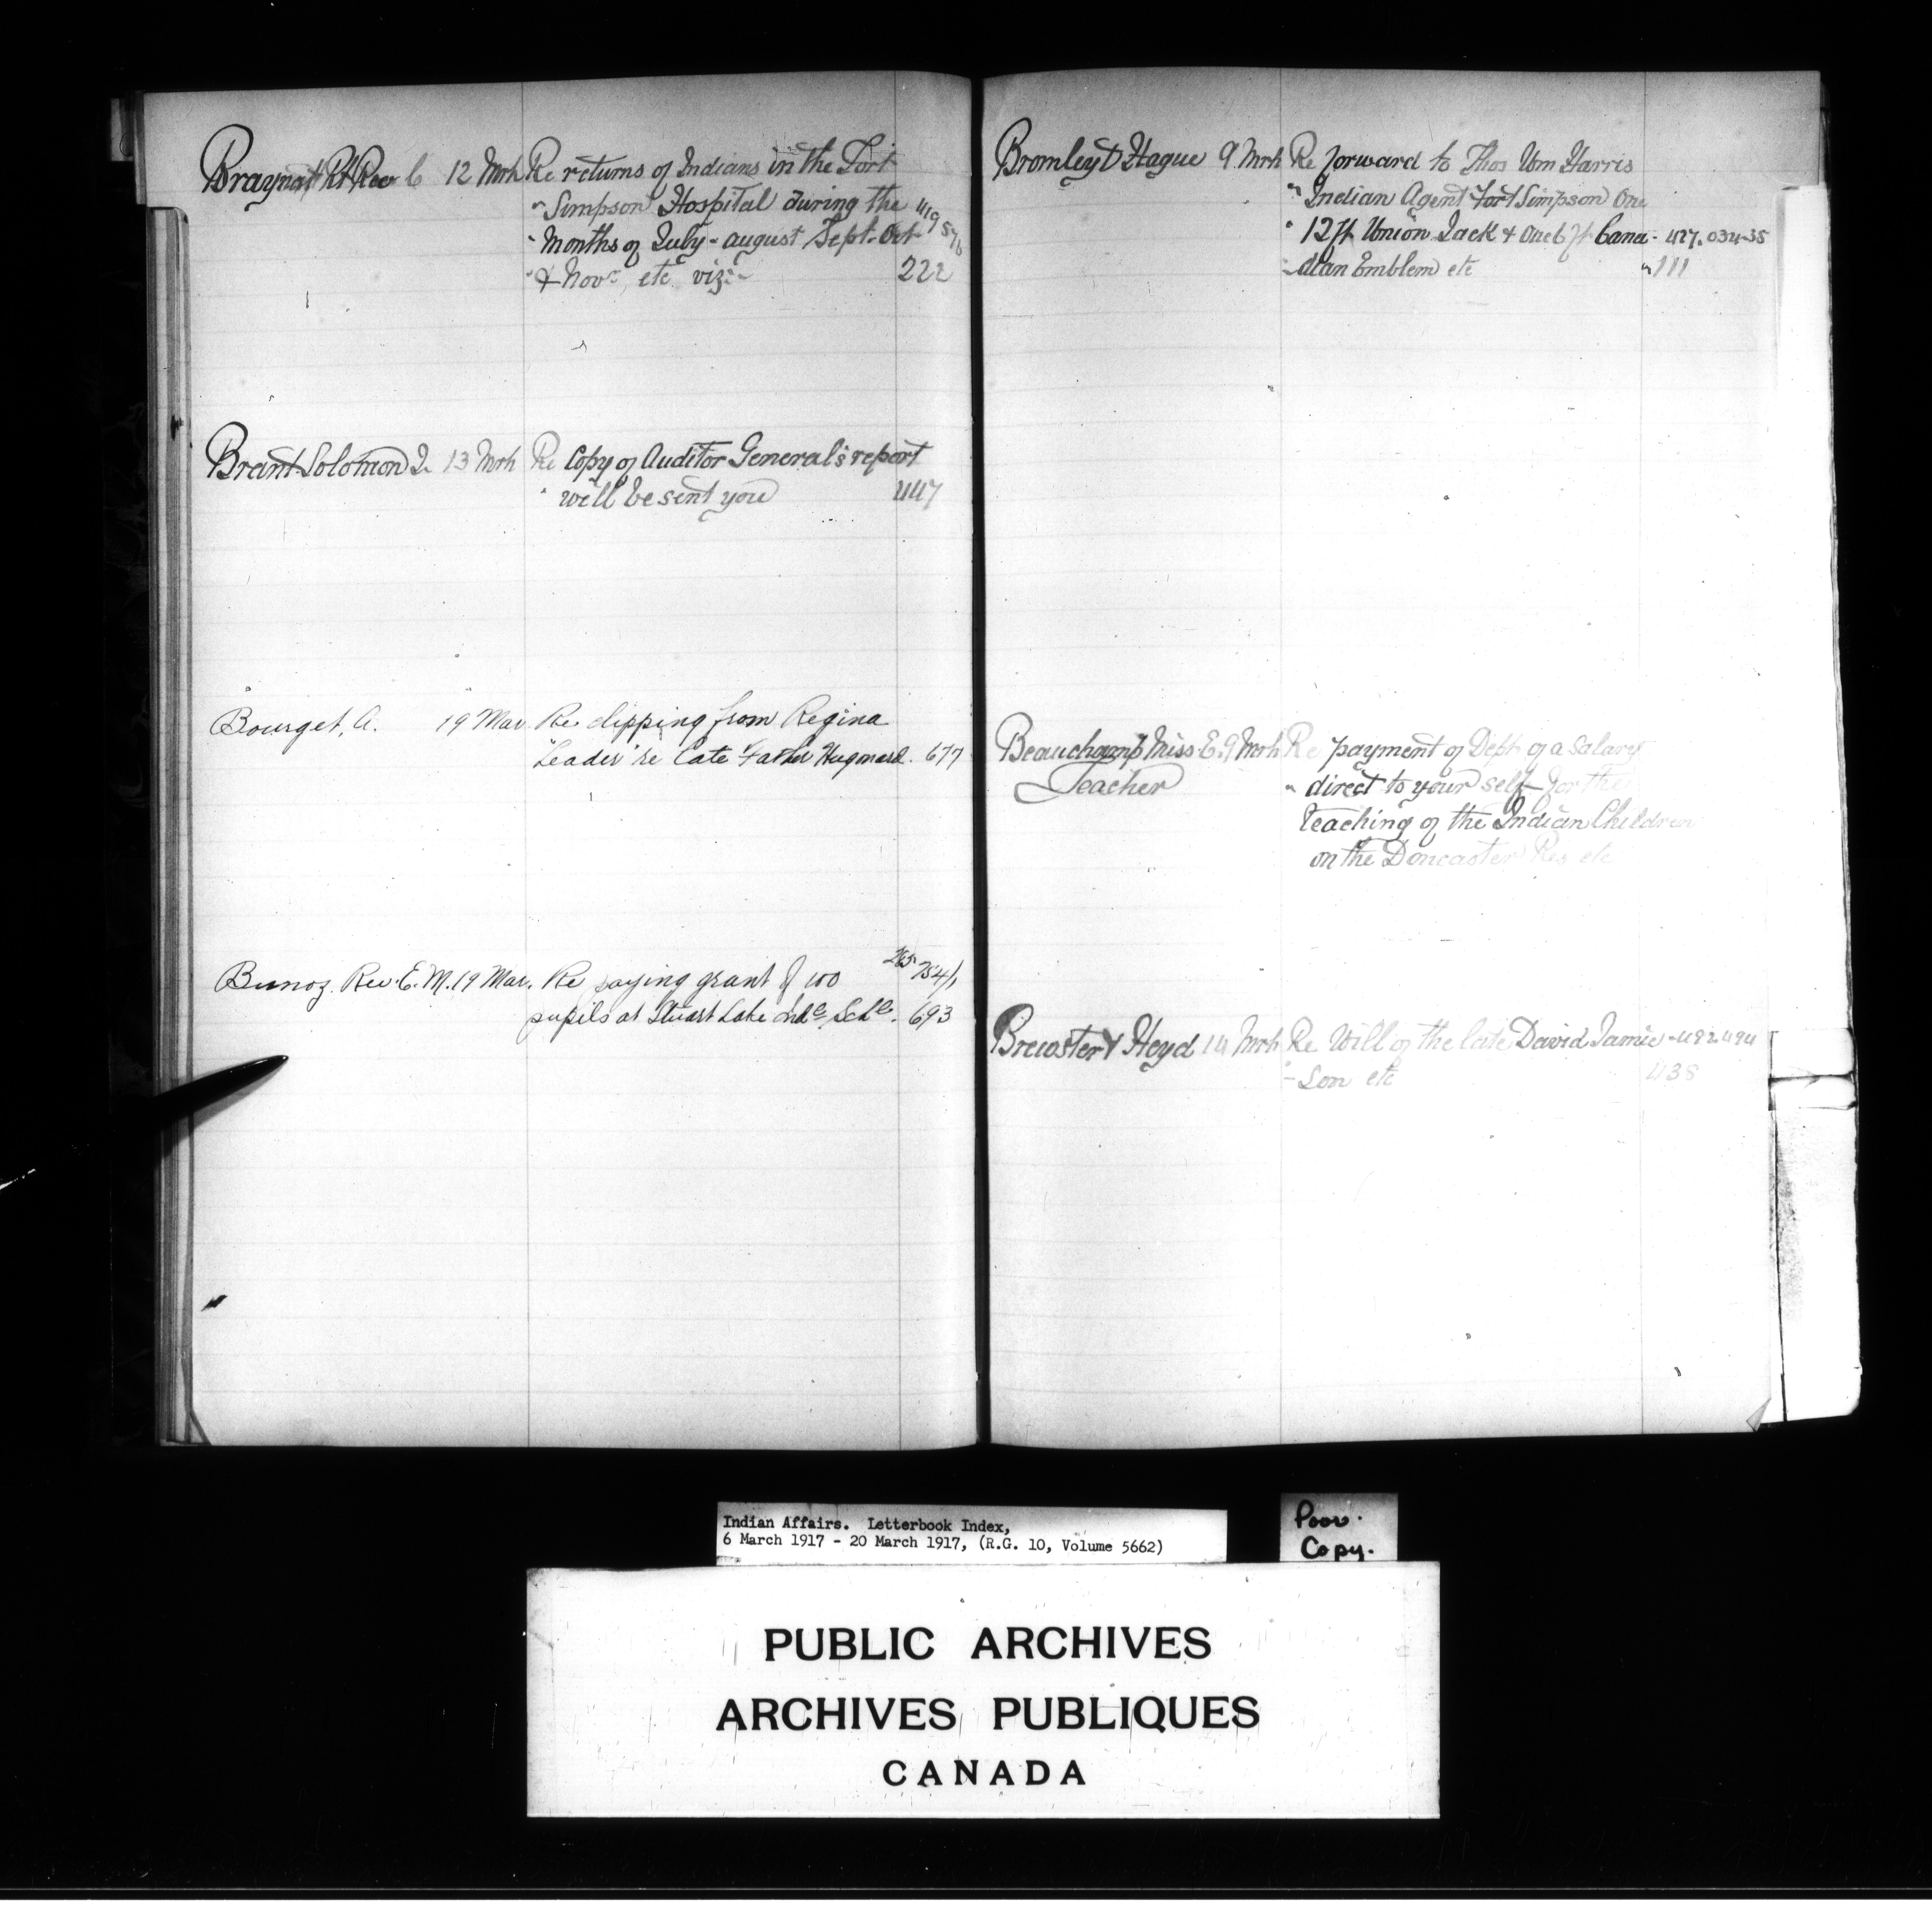 Braynat Rt Rev C 12 Mrh Re returns of Indians in the Fort
" Simpson Hospital during the 419576
" Months of July - august Sept. Oct
" & Novr, etc viz:- 222
Brant Solomon J. 13 Mrh Re Copy of Auditor General's report
" will be sent you 447
Bourget, A. 19 Mar Re clipping from Regina
"Leader" re late Father Hugonard. 677
Bunoz. Rev. E. M. 19 Mar. Re paying grant of 100 754/1
pupils at Stuart Lake Indl. Schl. 693
Bromley & Hague 9 Mrh Re forward to Thos Wm Harris
" Indian Agent Fort Simpson One
" 12 ft Union Jack & One 6 ft Cana - 427.034-35
- dian Emblem etc " 111
Beauchamp Miss E. 9 Mrh Re payment of Dept of a Salary
Teacher " direct to your self for the
teaching of the Indian Children
on the Doncaster Res etc
Brewster & Heyd 14 Mrh Re Will of the late David Jamie - 492.494
" - Son etc 438
Indian Affairs. Letterbook Index,
6 March 1917 - 20 March 1917, (R.G. 10, Volume 5662)
Poor.
Copy.
PUBLIC ARCHIVES
ARCHIVES PUBLIQUES
CANADA